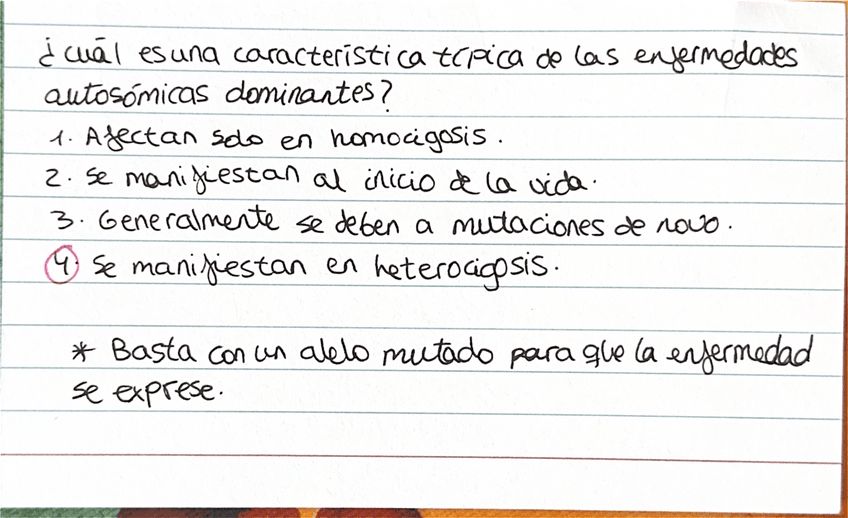 ¿cuál es una característica típica de las enfermedades
autosómicas dominantes?
1. Afectan solo en homocigosis.
2. se manifiestan al inicio de la vida.
3. Generalmente se deben a mutaciones de novo.
4. Se manifiestan en heterocigosis.
* Basta con un alelo mutado para que la enfermedad
se exprese.